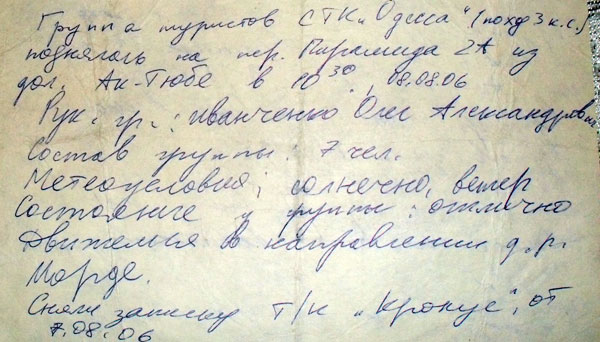 Группа туристов СТК „Одесса“ (поход 3 к.с.)
поднялась на пер. Пирамида 2А из
дол. Ак-Тюбе в 10³⁰, 08.08.06
Рук. гр.: Иванченко Олег Александрович
Состав группы: 7 чел.
Метеоусловия: солнечно, ветер
Состояние группы: отлично
Движемся в направлении д.р.
Морде.
Сняли записку т/к „Крокус“, от
7.08.06